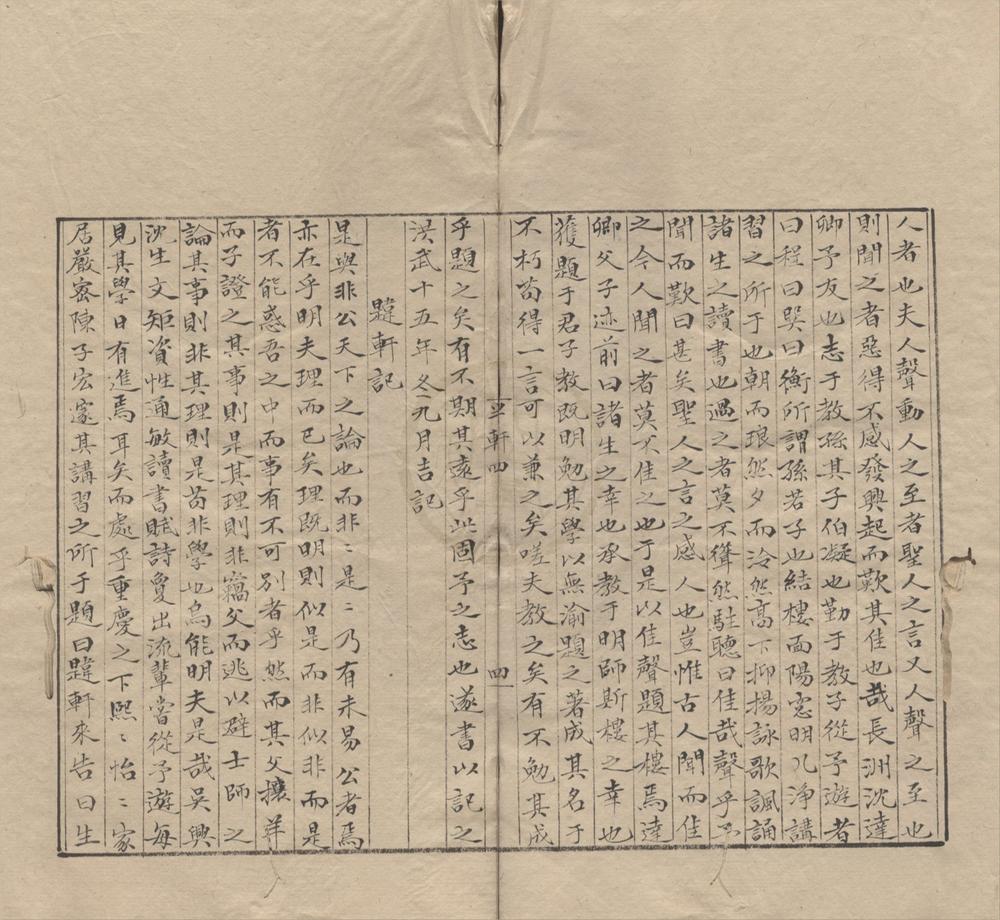 人者也夫人聲動人之至者聖人之言又人聲之至也
則聞之者惡得不感發興起而歎其佳也哉長洲沈達
卿予友也志于教孫其子伯凝也勤于教子從予遊者
曰程曰㮚曰衡所謂孫若子也結樓面陽窓明几淨講
習之所于也朝而琅然夕而泠然高下抑揚詠歌諷誦
諸生之讀書也過之者莫不聳然駐聽曰佳哉聲乎予
聞而歎曰甚矣聖人之言之感人也豈惟古人聞而佳
之今人聞之者莫不佳之也于是以佳聲題其樓焉達
卿父子迹前曰諸生之幸也承教于明師斯樓之幸也
獲題于君子教既明勉其學以無渝題之著成其名于
不朽苟得一言可以兼之矣嗟夫教之矣有不勉其成
乎題之矣有不期其遠乎此固予之志也遂書以記之
洪武十五年冬九月吉記
韙軒記
是與非公天下之論也而非〻是〻乃有未易公者焉
亦在乎明夫理而已矣理既明則似是而非似非而是
者不能惑吾之中而事有不可別者乎然而其父攘羊
而子證之其事則是其理則非竊父而逃以辟士師之
論其事則非其理則是苟非學也烏能明夫是哉吳興
沈生文矩資性通敏讀書賦詩敻出流輩嘗從予遊每
見其學日有進焉耳矣而處乎重慶之下熙〻怡〻家
居嚴密陳子宏寔其講習之所于題曰韙軒來告曰生